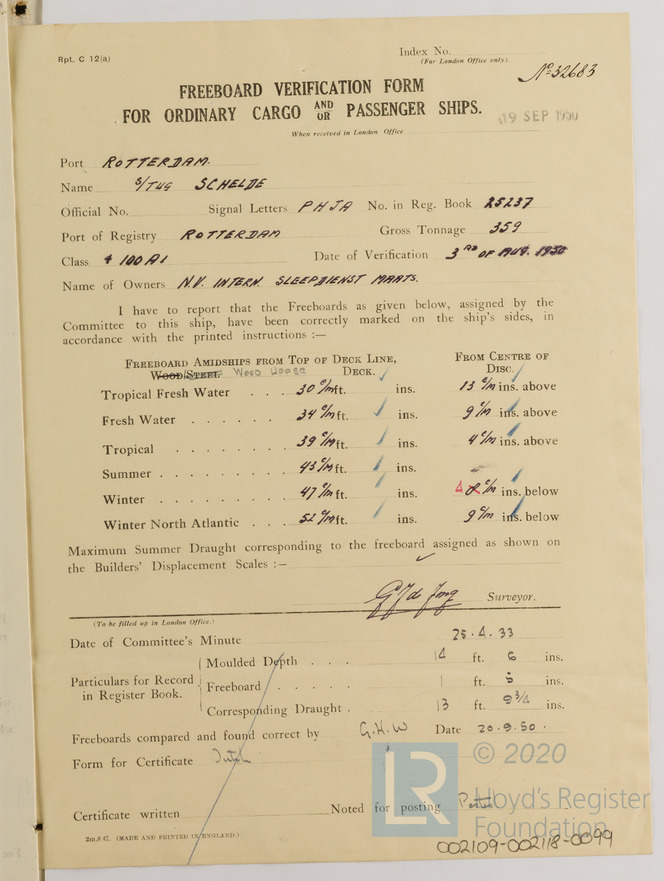 Rpt. C 12(a)
Index No.
(For London Office only).
No 32683
FREEBOARD VERIFICATION FORM
FOR ORDINARY CARGO AND OR PASSENGER SHIPS.
19 SEP 1950
When received in London Office
Port ROTTERDAM.
Name S/TUG SCHELDE
Official No. Signal Letters PHJA No. in Reg. Book 25237
Port of Registry ROTTERDAM Gross Tonnage 359
Class + 100 A1 Date of Verification 3RD OF AUG. 1950
Name of Owners N.V. INTERN. SLEEPDIENST MAATS.
I have to report that the Freeboards as given below, assigned by the
Committee to this ship, have been correctly marked on the ship's sides, in
accordance with the printed instructions :—
FREEBOARD AMIDSHIPS FROM TOP OF DECK LINE, FROM CENTRE OF
WOOD/STEEL WOOD UPPER DECK. DISC.
Tropical Fresh Water . . . 30 c/m ft. ins. 13 c/m ins. above
Fresh Water . . . . . 34 c/m ft. ins. 9 c/m ins. above
Tropical . . . . . . . 39 c/m ft. ins. 4 c/m ins. above
Summer . . . . . . . 43 c/m ft. ins.
Winter . . . . . . . 47 c/m ft. ins. 4 c/m ins. below
Winter North Atlantic . . . 52 c/m ft. ins. 9 c/m ins. below
Maximum Summer Draught corresponding to the freeboard assigned as shown on
the Builders' Displacement Scales :—
G J de Jong Surveyor.
(To be filled up in London Office.)
Date of Committee's Minute 25.4.33
Moulded Depth . . . 14 ft. 6 ins.
Particulars for Record
in Register Book.
Freeboard . . . . . 1 ft. 5 ins.
Corresponding Draught . 13 ft. 9 3/4 ins.
Freeboards compared and found correct by G.H.W Date 20.9.50.
Form for Certificate Dutch
Certificate written Noted for posting
2m.8 47. (MADE AND PRINTED IN ENGLAND.)
LR
© 2020
Lloyd's Register
Foundation
002109-002118-0099